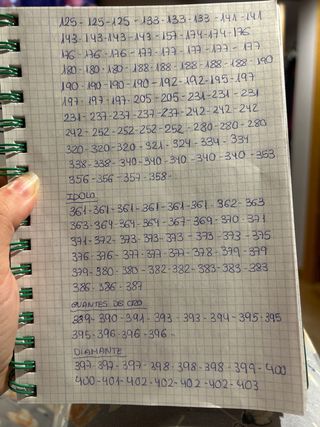 125 - 125 - 125 - 133 - 133 - 133 - 141 - 141
143 - 143 - 143 - 143 - 157 - 174 - 174 - 176
176 - 176 - 176 - 177 - 177 - 177 - 177 - 177
180 - 180 - 180 - 188 - 188 - 188 - 188 - 190
190 - 190 - 190 - 190 - 192 - 192 - 195 - 197
197 - 197 - 197 - 205 - 205 - 231 - 231 - 231
231 - 237 - 237 - 237 - 237 - 242 - 242 - 242
242 - 252 - 252 - 252 - 252 - 280 - 280 - 280
320 - 320 - 320 - 321 - 324 - 334 - 334
338 - 338 - 340 - 340 - 340 - 340 - 340 - 353
356 - 356 - 357 - 358 -
IDOLO
361 - 361 - 361 - 361 - 361 - 361 - 362 - 363
363 - 364 - 364 - 364 - 367 - 369 - 370 - 371
371 - 372 - 373 - 373 - 373 - 373 - 373 - 375
376 - 376 - 377 - 377 - 377 - 378 - 379 - 379
379 - 380 - 380 - 382 - 382 - 383 - 383 - 383
386 - 386 - 387
GUANTES DE ORO
389 - 390 - 391 - 393 - 393 - 394 - 395 - 395
395 - 396 - 396 - 396 -
DIAMANTE
397 - 397 - 397 - 398 - 398 - 398 - 399 - 400
400 - 401 - 402 - 402 - 402 - 402 - 403